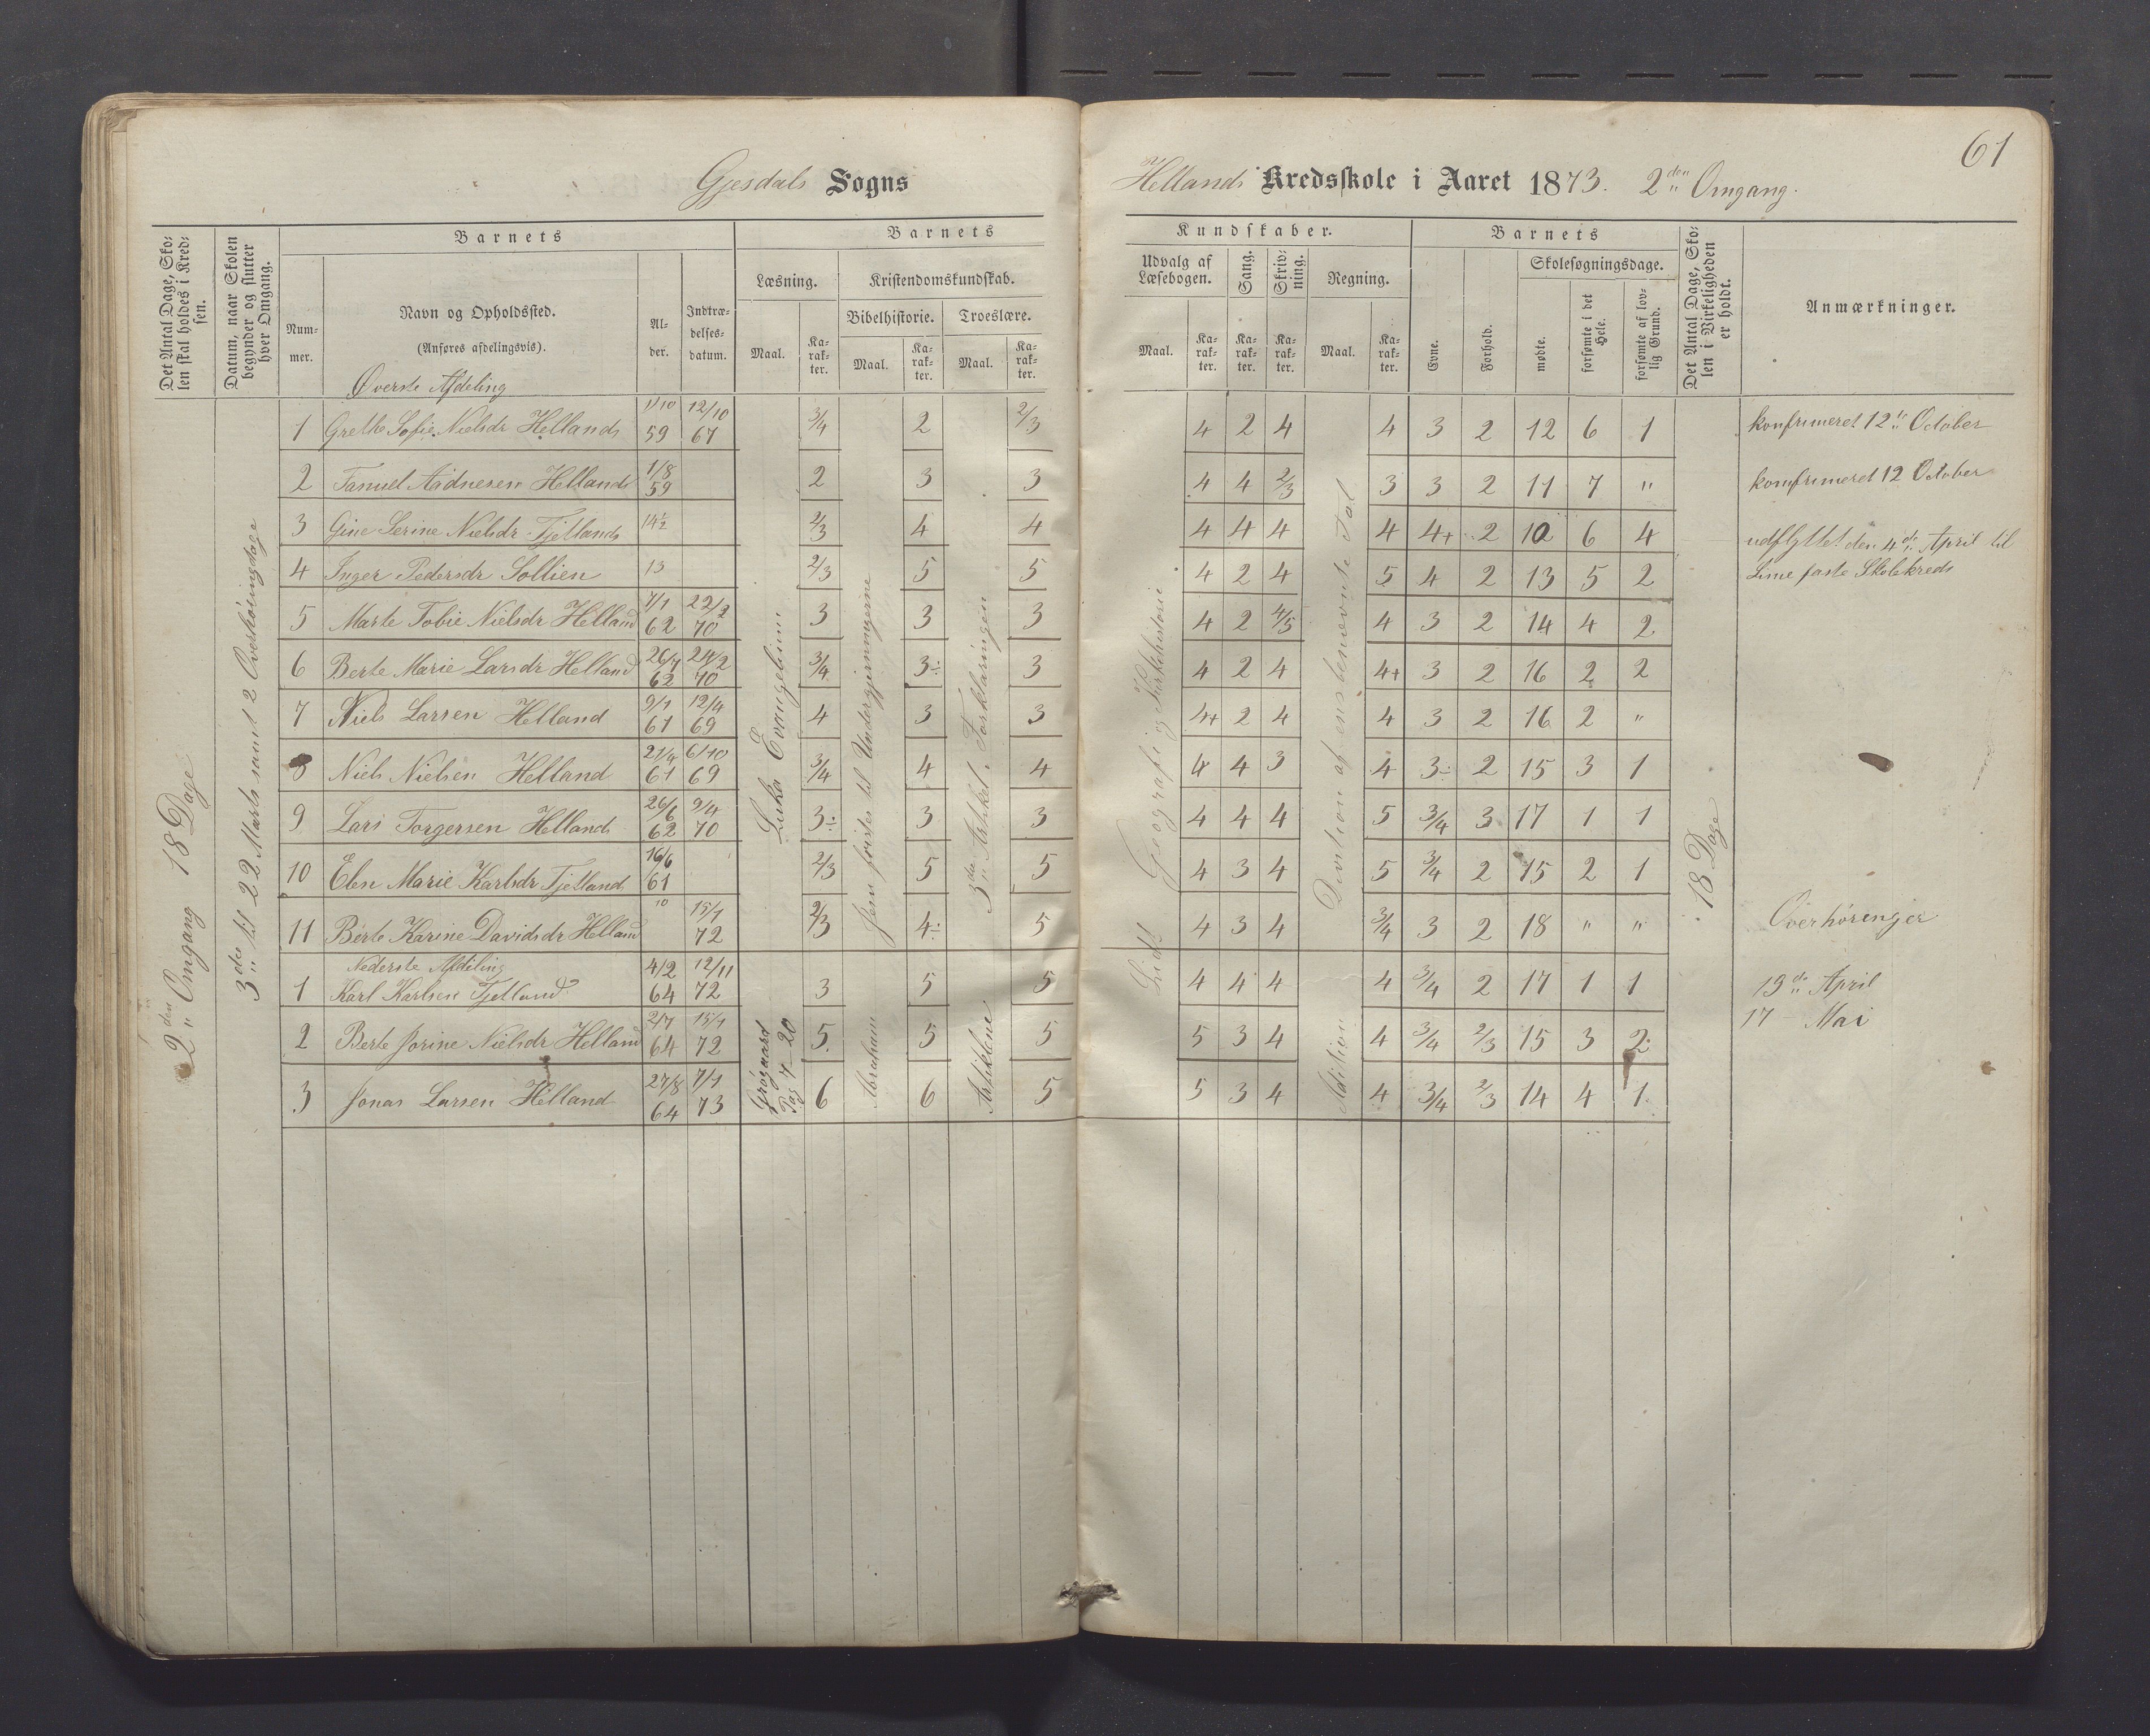 61
Gjesdals Sogns
Hellands Kredsskole i Aaret 1873. 2den Omgang.
Det Antal Dage, Skolen skal holdes i Kredsen.
Datum, naar Skolen begynder og slutter hver Omgang.
Barnets
Nummer.
Navn og Opholdssted.
(Anføres afdelingsvis).
Alder.
Indtrædelsesdatum.
Barnets
Læsning.
Kristendomskundskab.
Bibelhistorie.
Troeslære.
Maal.
Karakter.
Maal.
Karakter.
Maal.
Karakter.
Kundskaber.
Udvalg af Læsebogen.
Sang.
Skrivning.
Regning.
Maal.
Karakter.
Karakter.
Karakter.
Maal.
Karakter.
Barnets
Evne.
Forhold.
Skolesøgningsdage.
mødte.
forsømte i det Hele.
forsømte af lovlig Grund.
Det Antal Dage, Skolen i Virkeligheden er holdt.
Anmærkninger.
2den Omgang 18 Dage
3die til 22 Marts samt 2 Overhøringsdage
Øverste Afdeling
1 Grethe Sofie Nielsdr Hellands 1/10 59 12/10 67 3/4 2 2/3 4 2 4 4 3 2 12 6 1 konfirmeret 12te October
2 Tanuel Aadnesen Hellands 1/8 59 2 3 3 4 4 2/3 3 3 2 11 7 " komfirmeret 12 October
3 Gine Serine Nielsdr Fjellands 14½ 2/3 4 4 4 4 4 4 4+ 2 10 6 4 udflyttet den 4de April til
4 Inger Pedersdr Sollien 13 2/3 5 5 4 2 4 5 4 2 13 5 2 Lime faste Skolekreds
5 Marte Tobie Nielsdr Helland 7/1 62 22/2 70 3 3 3 4 2 4/5 4 3 2 14 4 2
6 Berte Marie Larsdr Helland 26/7 62 24/2 70 3/4 3÷ 3 4 2 4 4+ 3 2 16 2 2
7 Niels Larsen Helland 9/1 61 12/4 69 4 3 3 4+ 2 4 4 3 2 16 2 "
8 Niels Nielsen Helland 21/9 61 6/10 69 3/4 4 4 4 4 3 4 3÷ 2 15 3 1
9 Lars Torgersen Helland 26/6 62 9/4 70 3÷ 3 3 4 4 4 5 3/4 3 17 1 1
10 Elen Marie Karlsdr Fjelland 16/6 61 2/3 5 5 4 3 4 5 3/4 2 15 2 1
11 Berte Karine Davidsdr Helland 10 15/1 72 2/3 4÷ 5 4 3 4 3/4 3 2 18 " " Overhøringer
Nederste Afdeling
1 Karl Karlsen Fjelland 4/2 64 12/11 72 3 5 5 4 4 4 4 3/4 2 17 1 1 19de April
2 Berte Jorine Nielsdr Helland 2/7 64 15/1 72 5 5 5 5 3 4 4 3/4 2/3 15 3 2 17 – Mai
3 Jonas Larsen Helland 27/8 64 7/1 73 6 6 5 5 3 4 4 3/4 2/3 14 4 1
Luka Evangelium
Grøgaard Pag 7–20
Jesu til Undergjerningerne
Abraham
3die Artikel. Forklaringen
Artiklene
Lidt Geografi og Kirkehistorie
Division af ensbenævnte Tal
Adition
18 Dage